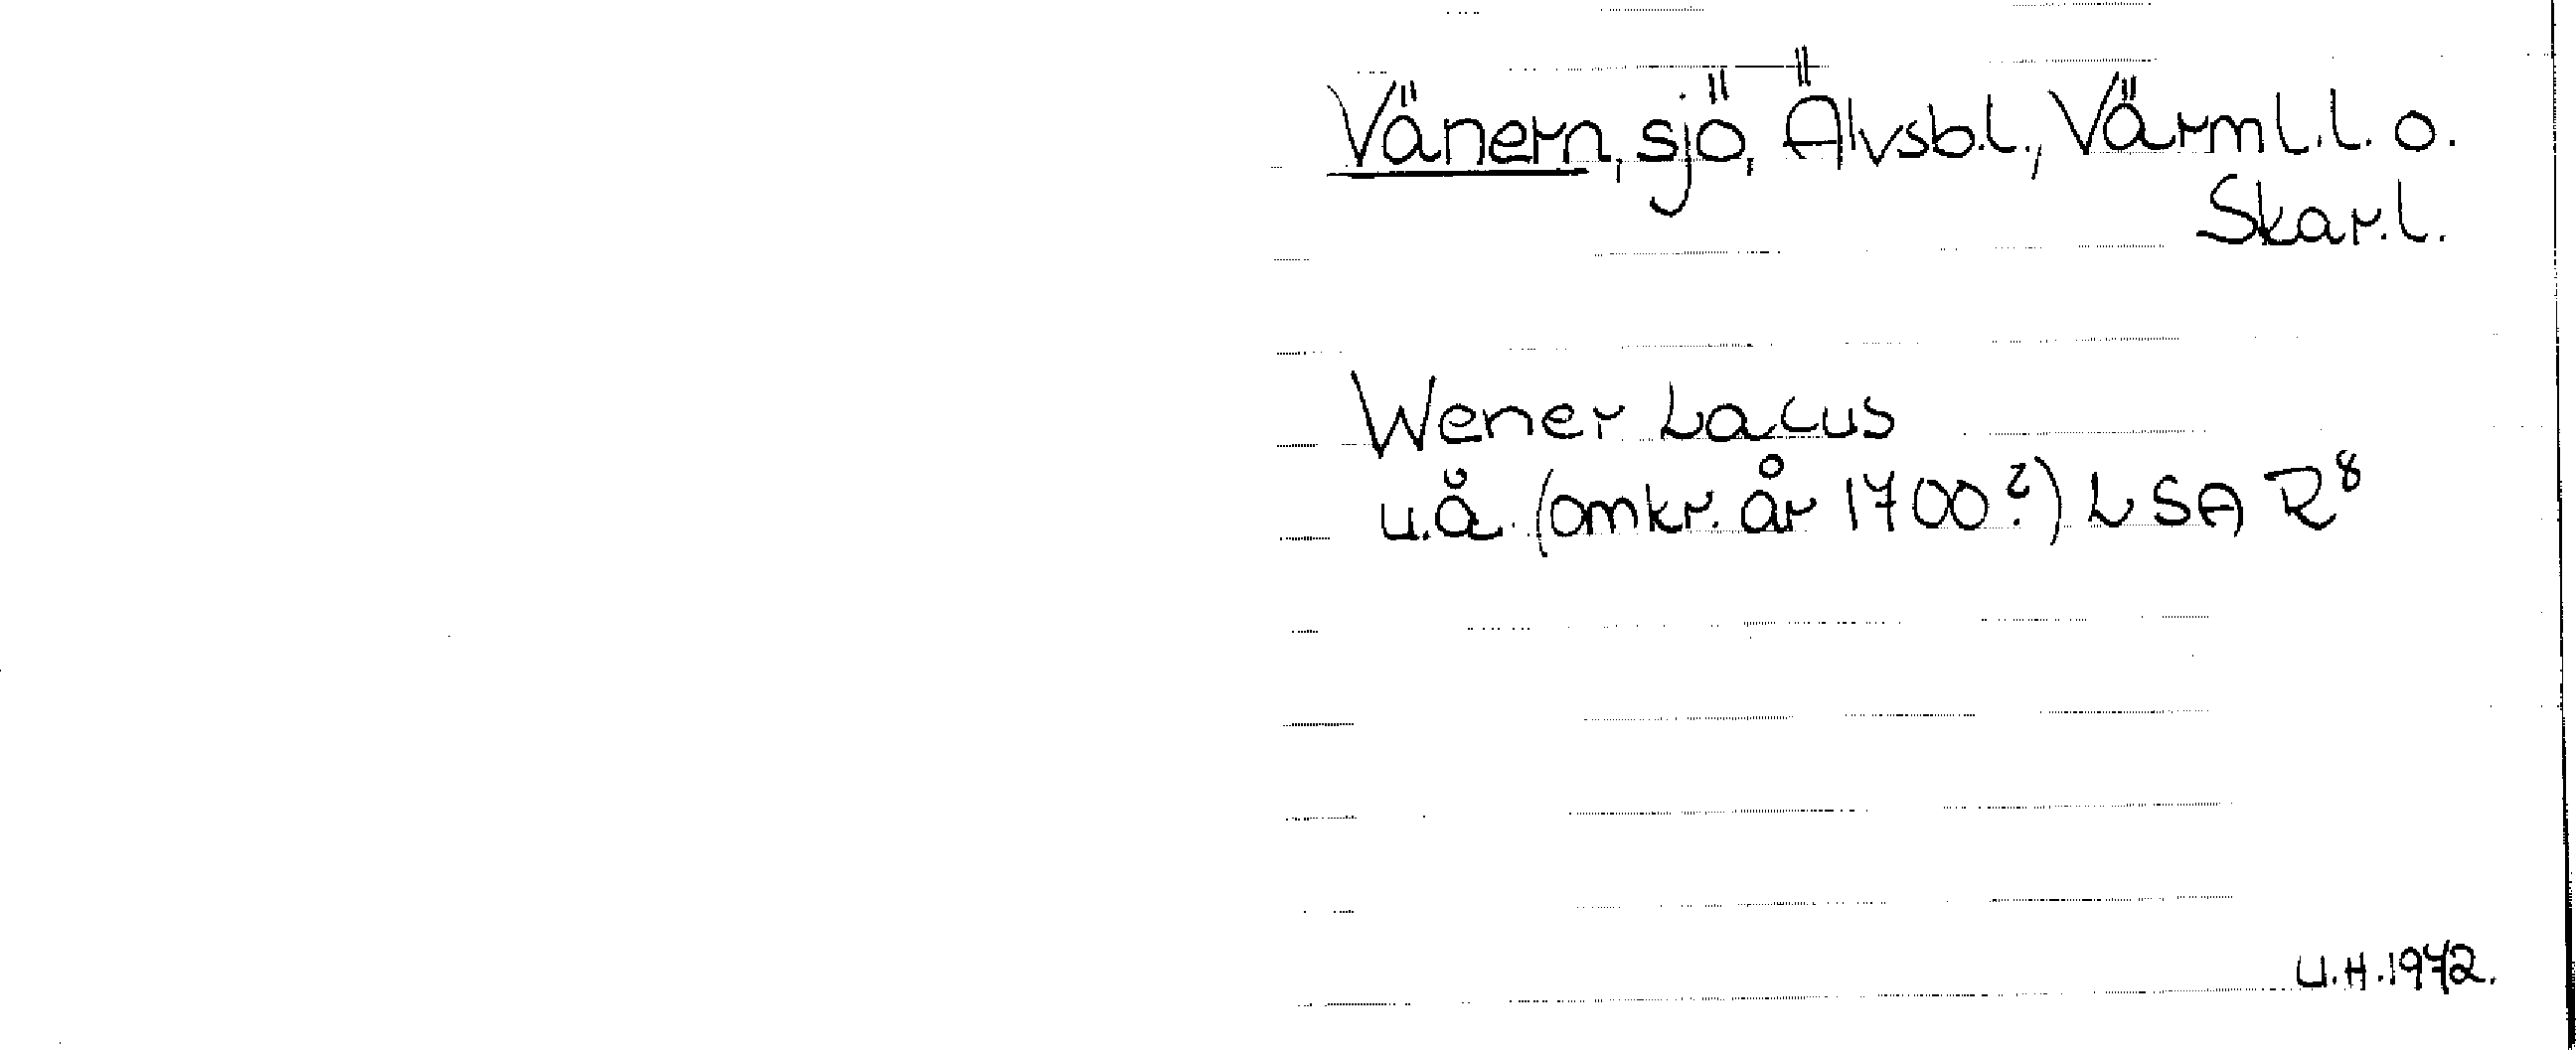 Vänern, sjö, Älvsb.l., Värml.l. o.
Skar.l.
Wener Lacus
u.å. (omkr. år 1700?) LSA R⁸
U.H.1972.